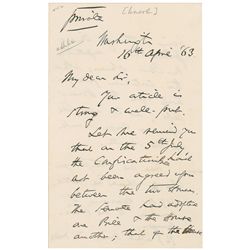 Private
[Lincoln]
Washington
16th April '63.
My dear Sir,
Your article is
strong & well-put.
Let me remind you
that on the 5th July
the Confiscation bill had
not been agreed upon
between the two Houses.
The Senate had adopted
one Bill & the House
another; that of the House